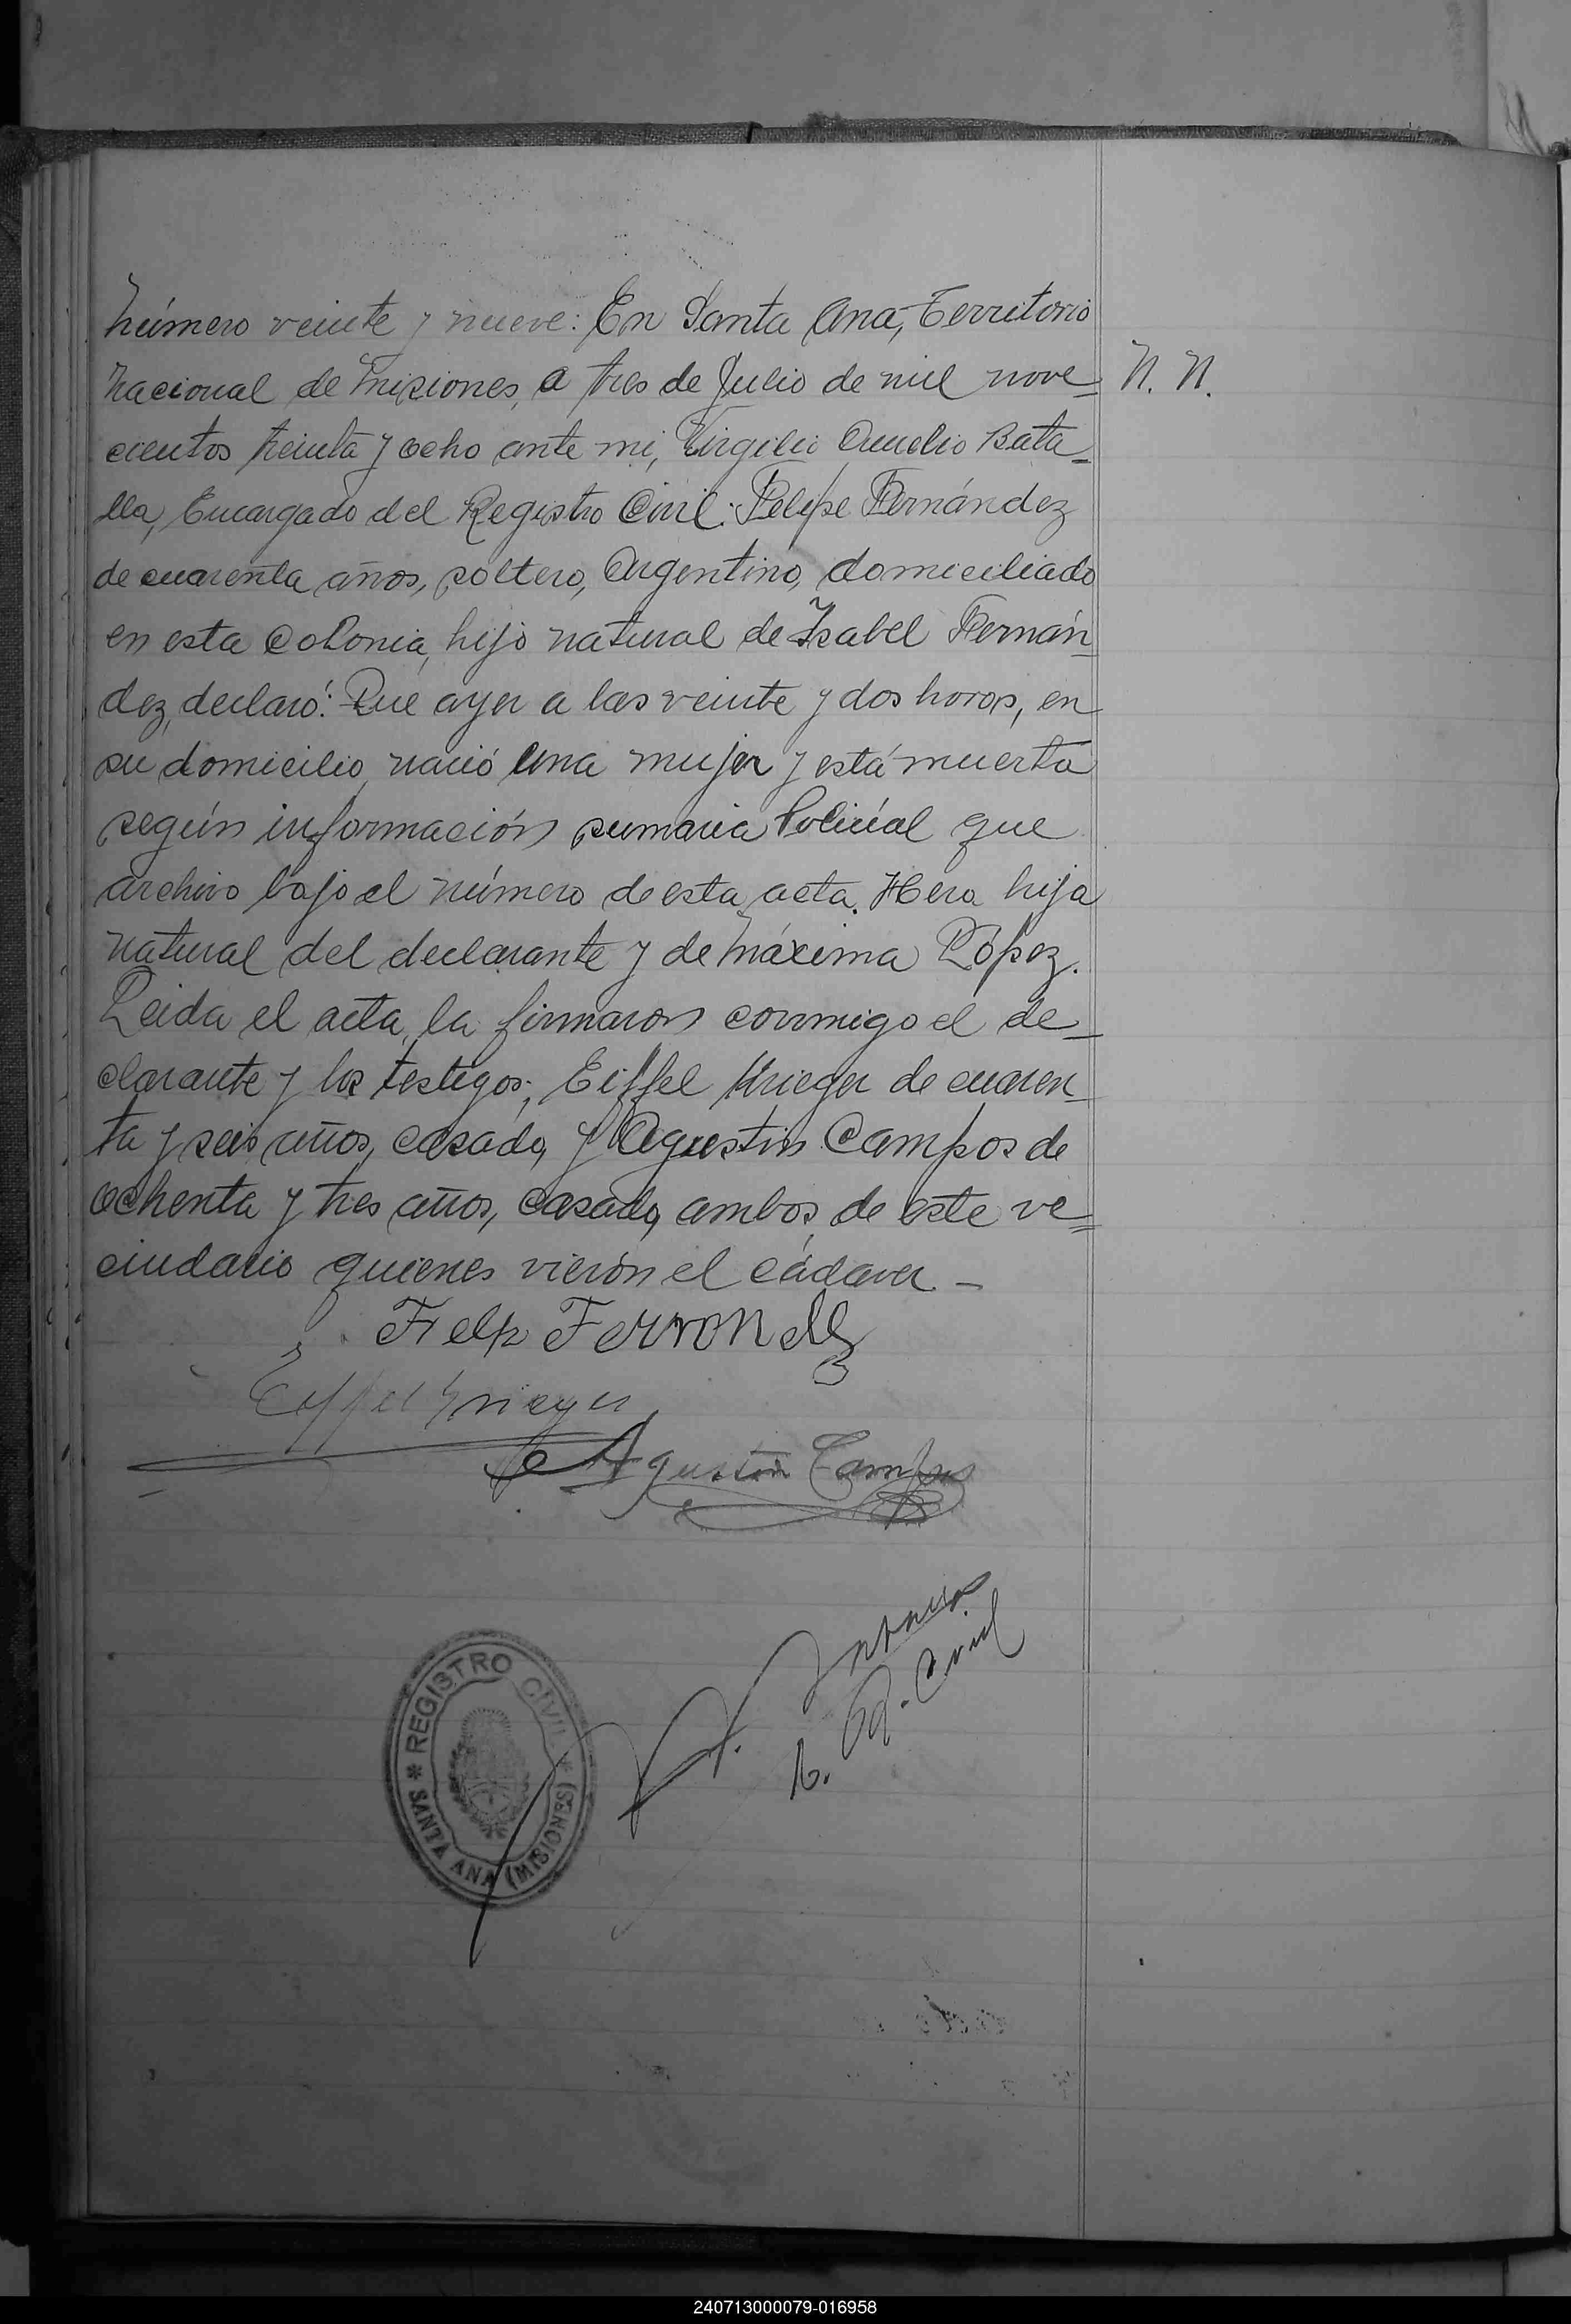 Número veinte y nueve: En Santa Ana, Territorio
Nacional de Misiones, a tres de Julio de mil nove- N. N.
cientos treinta y ocho ante mi, Virgilio Aurelio Bata-
lla, Encargado del Registro Civil: Felipe Fernández
de cuarenta años, soltero, Argentino, domiciliado
en esta Colonia, hijo natural de Isabel Fernán-
dez, declaró: Que ayer a las veinte y dos horas, en
su domicilio, nació una mujer y está muerta
según información sumaria Policial que
archivo bajo el número de esta acta. Hera hija
natural del declarante y de Máxima López.
Leida el acta, la firmaron conmigo el de-
clarante y los testigos, Eiffel Krieger de cuaren-
ta y seis años, casado, y Agustin Campos de
ochenta y tres años, casado, ambos de este ve=
cindario quienes vierón el cádaver. -
Felp Ferrondez
Eiffel Krieger
Agustin Campos
REGISTRO CIVIL
* SANTA ANA (MISIONES) *
Civil
240713000079-016958